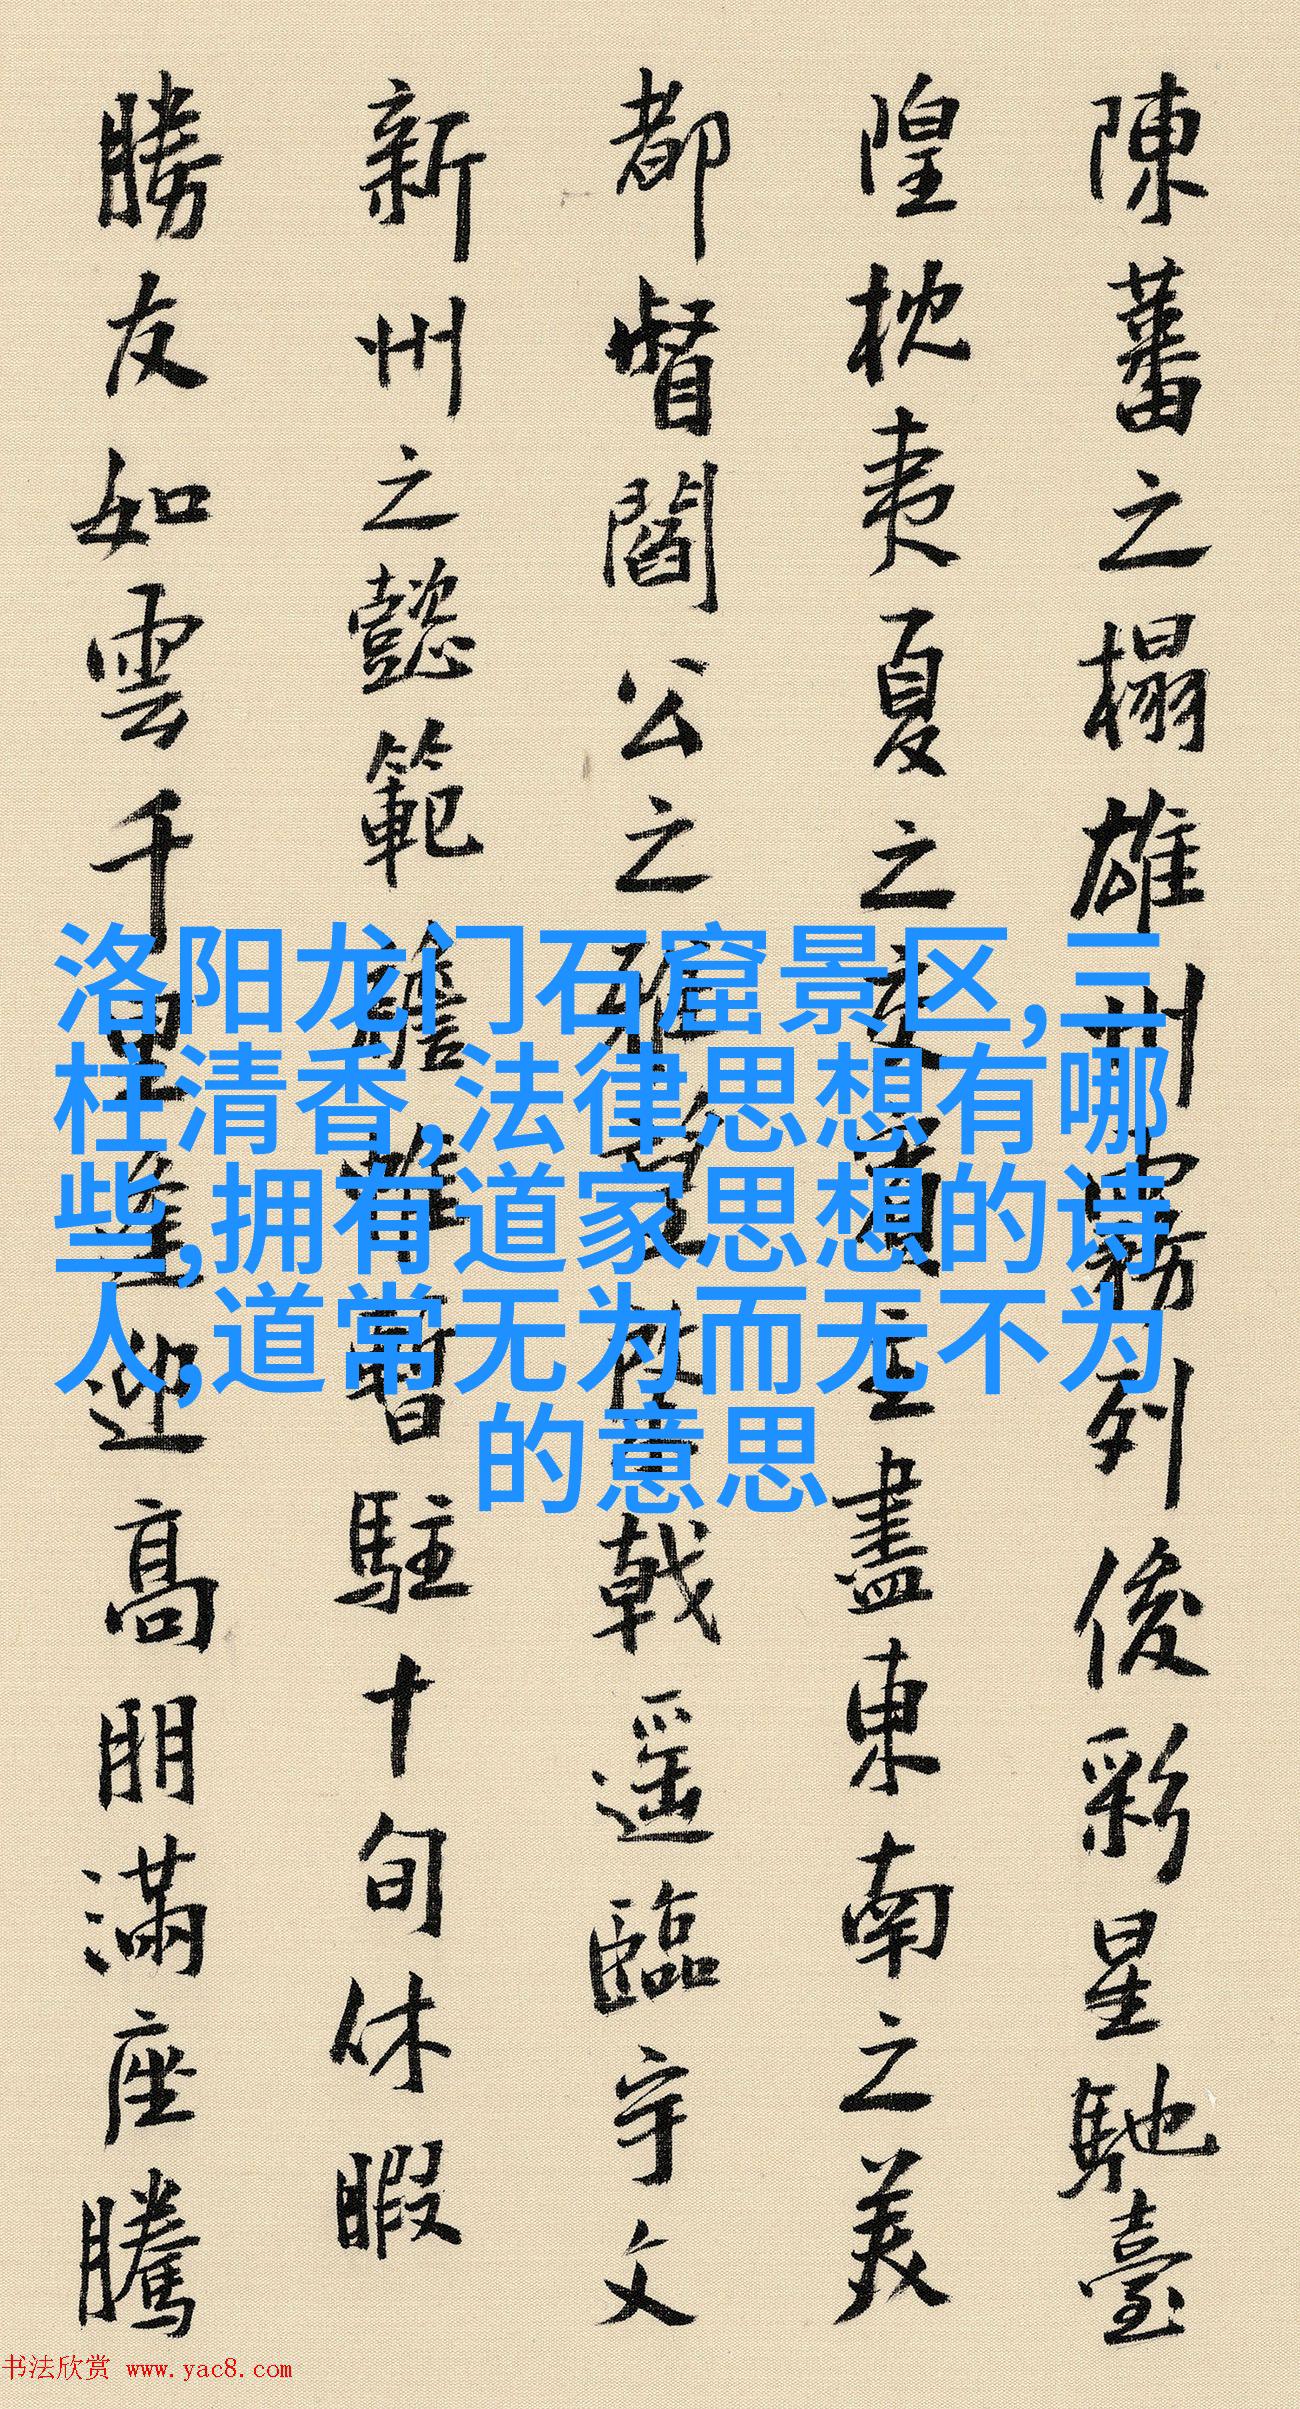 陳蕃之榻雄州霧列俊彩星馳臺
隍枕夷夏之交賓主盡東南之美
都督閻公之雅望棨戟遥臨宇文
新州之懿範襜帷暫駐十旬休暇
勝友如雲千里逢迎高朋滿座騰
洛阳龙门石窟景区,三
柱清香,法律思想有哪
些,拥有道家思想的诗
人,道常无为而无不为
的意思
书法欣赏 www.yac8.com